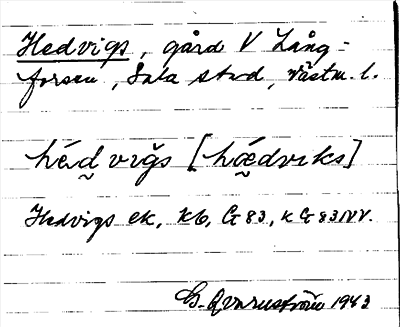 Hedvigs, gård V Lång-
forsen, Sala stad, Västm. l.
hédvigs [hœ́dviks]
Hedvigs ek, kb, G 83, k G 83 NV.
1943